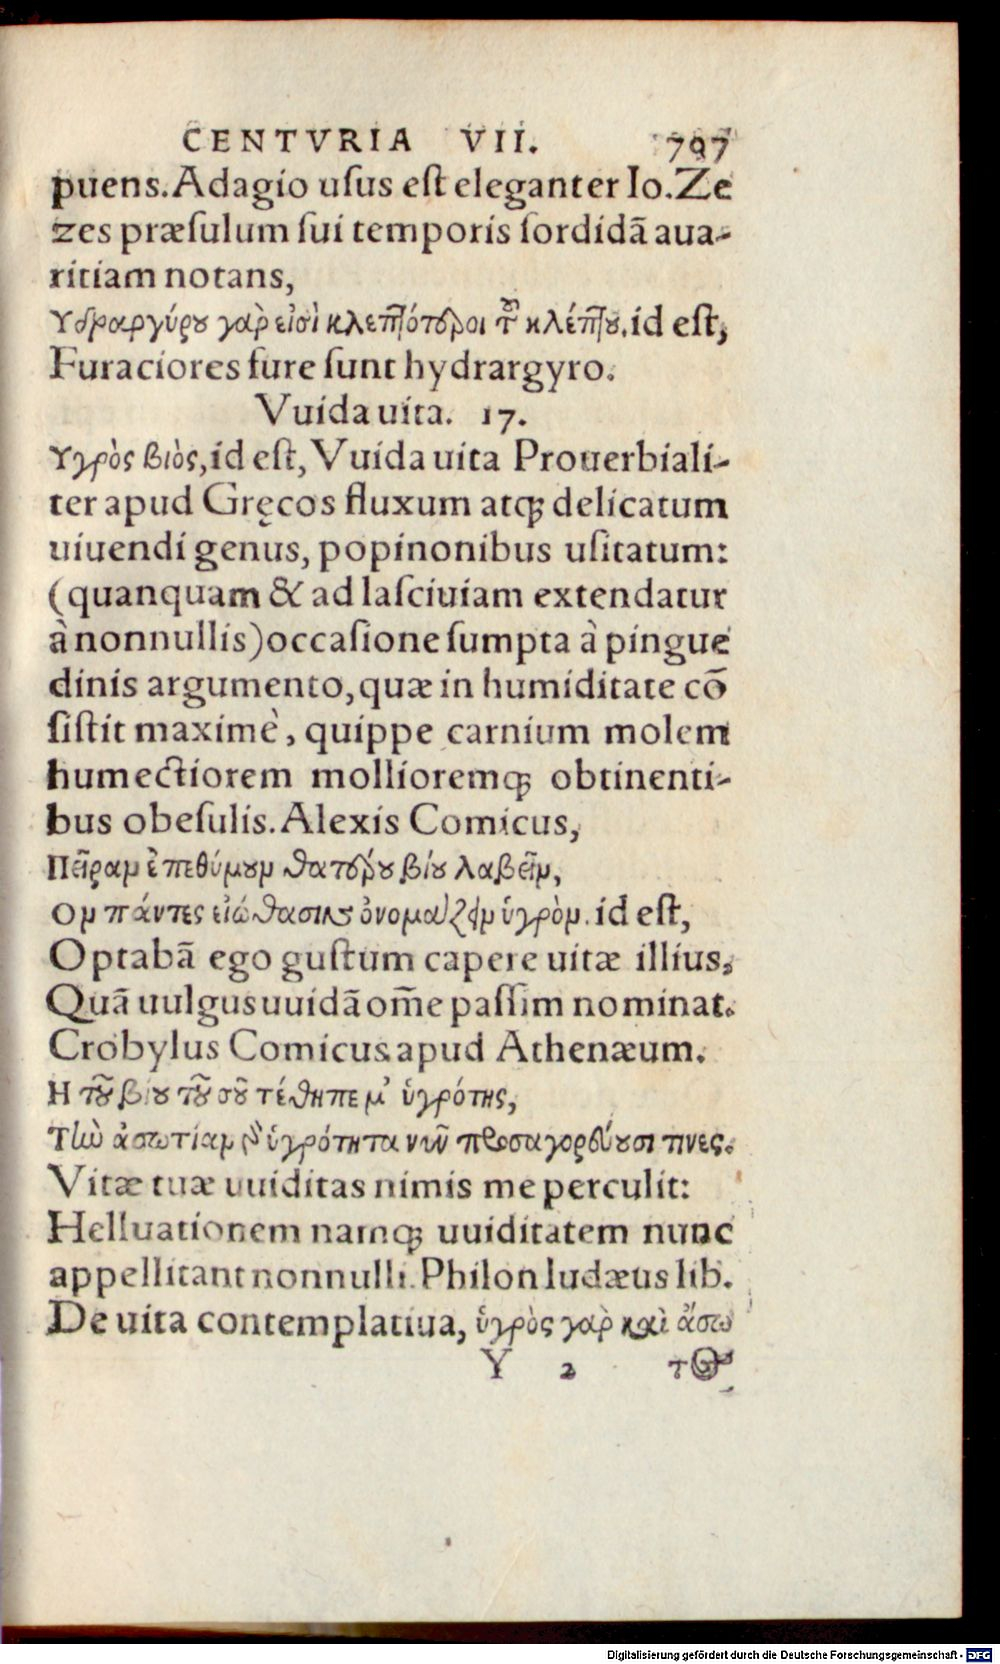 CENTVRIA VII. 797
puens. Adagio usus est eleganter Io. Ze
zes præsulum sui temporis sordidã aua-
ritiam notans,
Υδραργύρου γαρ εἰσὶ κλεπτότεροι τοῦ κλέπτου. id est,
Furaciores fure sunt hydrargyro.
Vuida uita. 17.
Υγρὸς βιὸς, id est, Vuida uita Prouerbiali-
ter apud Gręcos fluxum atq; delicatum
uiuendi genus, popinonibus usitatum:
(quanquam & ad lasciuiam extendatur
à nonnullis) occasione sumpta à pingue
dinis argumento, quæ in humiditate cõ
sistit maximè, quippe carnium molem
humectiorem mollioremq; obtinenti-
bus obesulis. Alexis Comicus,
Πεῖραν ἐπεθύμουν θατέρου βίου λαβεῖν,
Ον πάντες εἰώθασιν ὀνομάζειν ὑγρὸν. id est,
Optabã ego gustum capere uitæ illius,
Quã uulgus uuidã om̃e passim nominat.
Crobylus Comicus apud Athenæum.
Η τοῦ βίου τοῦ σοῦ τέθηπε μ' ὑγρότης,
Τὴν ἀσωτίαν γὰρ ὑγρότητα νῦν προσαγορεύουσι τινες.
Vitæ tuæ uuiditas nimis me perculit:
Helluationem namq; uuiditatem nunc
appellitant nonnulli. Philon Iudæus lib.
De uita contemplatiua, ὑγρὸς γαρ καὶ ἄσω
Y 2 τος
Digitalisierung gefördert durch die Deutsche Forschungsgemeinschaft - DFG